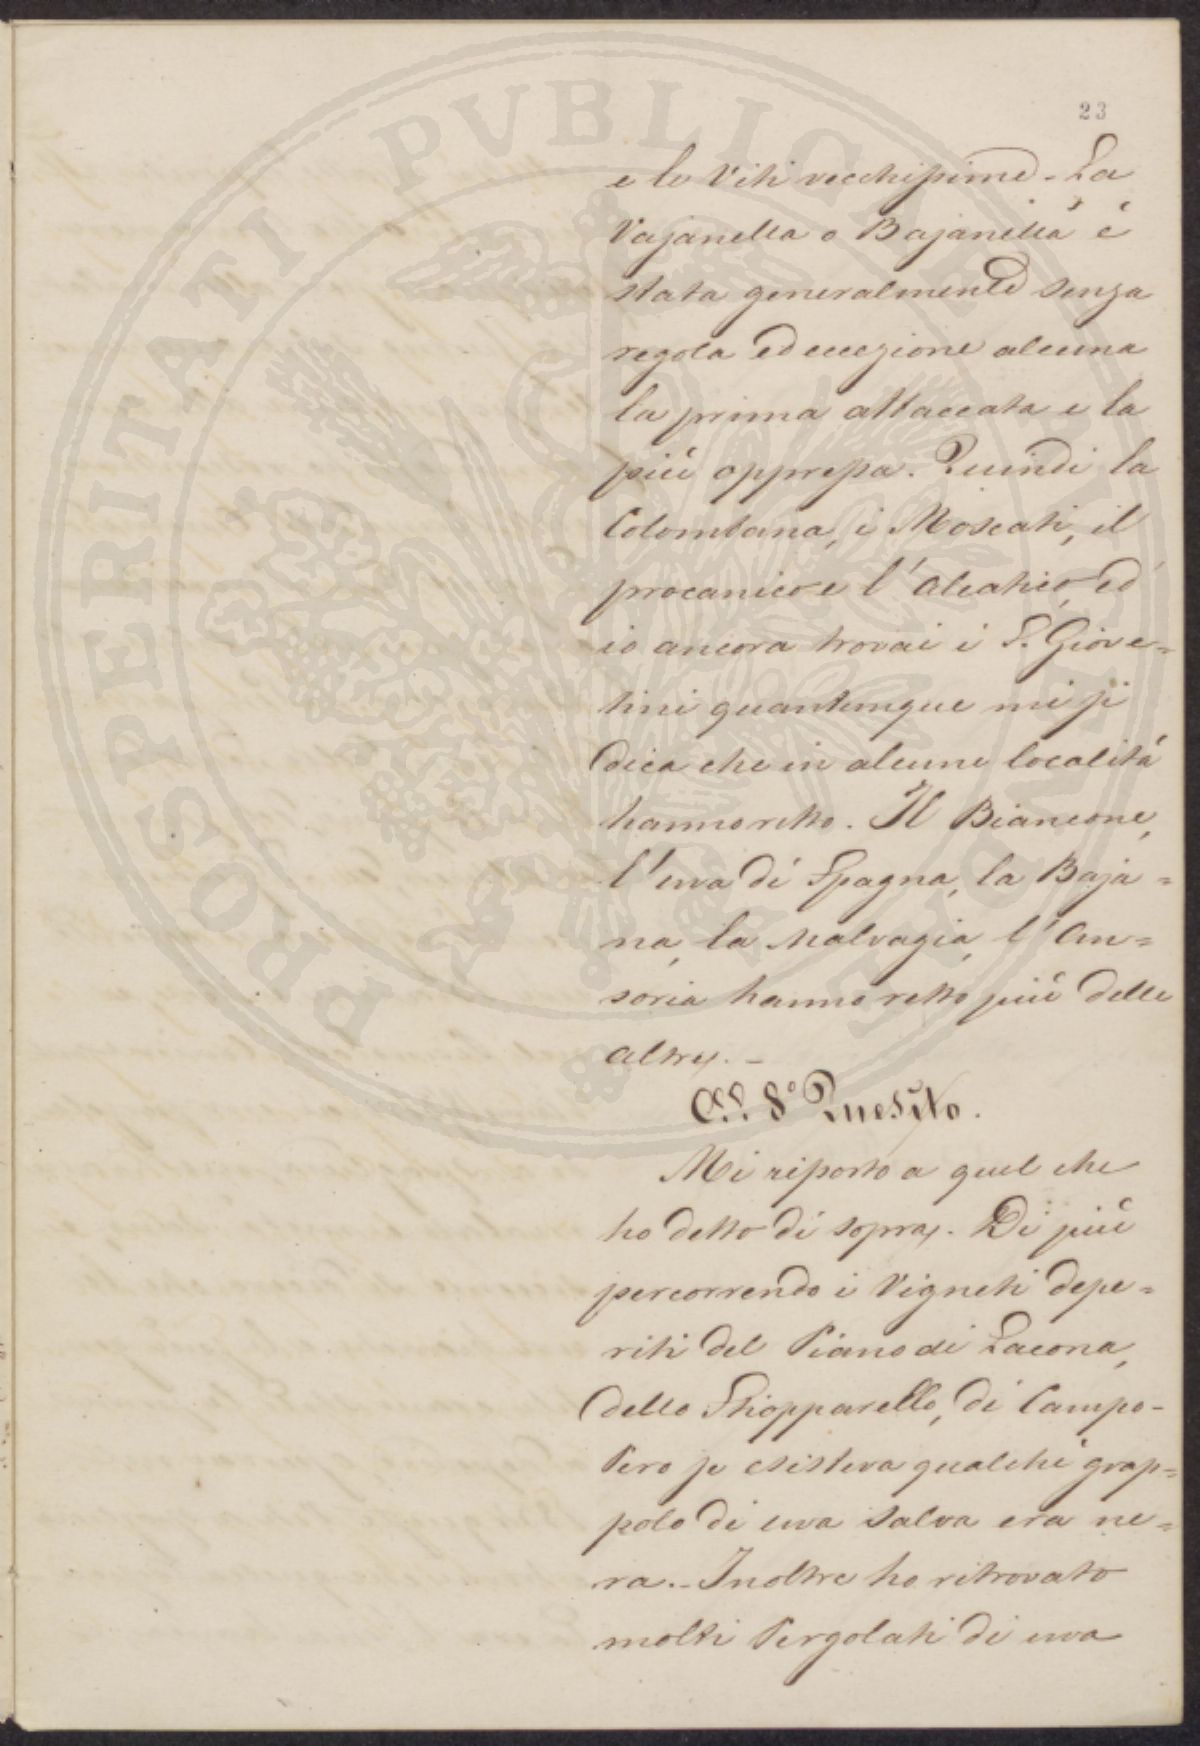 23
e le Viti vecchissime. - La
Vajanella o Bajanella è
stata generalmente senza
regola ed eccezione alcuna
la prima attaccata e la
più oppressa. Quindi la
Colombana, i Moscati, il
procanico e l'Aleatico, ed
io ancora trovai i S. Giove=
tini quantunque mi si
dica che in alcune località
hanno retto. Il Biancone,
l'uva di Spagna, la Baja=
na, la Malvagia, l'An=
soria hanno retto più delle
altre. -
Al 8° Quesito.
Mi riporto a quel che
ho detto di sopra. Di più
percorrendo i Vigneti depe=
riti del Piano di Lacona,
dello Schiopparello, di Campo-
Pero se esisteva qualche grap=
polo di uva salva era ne=
ra. - Inoltre ho ritrovato
molti Pergolati di uva
PROSPERITATI PVBLICAE AVGENDAE